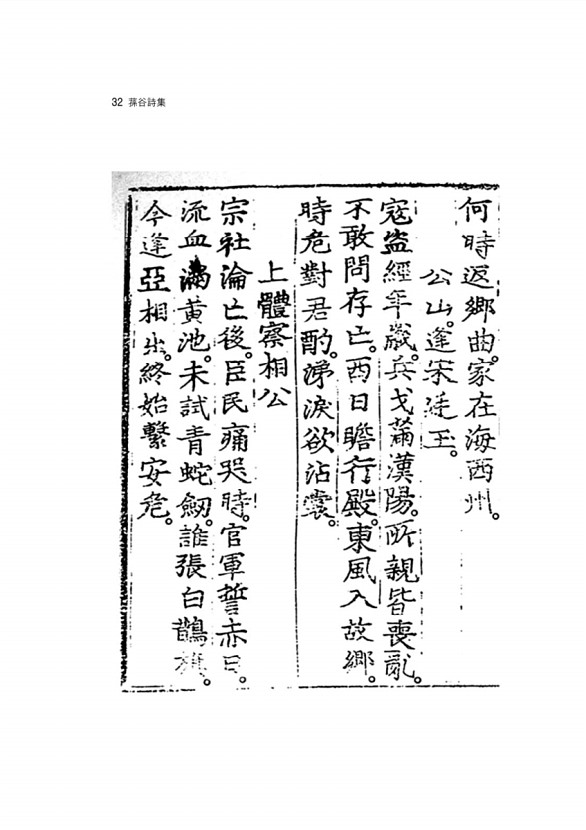 32 蓀谷詩集
何時返鄉曲。家在海西州。
公山。逢宋廷玉。
寇盜經年歲。兵戈滿漢陽。所親皆喪亂。
不敢問存亡。西日瞻行殿。東風入故鄉。
時危對君酌。涕淚欲沾裳。
上體察相公
宗社淪亡後。臣民痛哭時。官軍誓赤日。
流血滿黃池。未試青蛇劒。誰張白鵲。
今逢亞相出。終始繫安危。